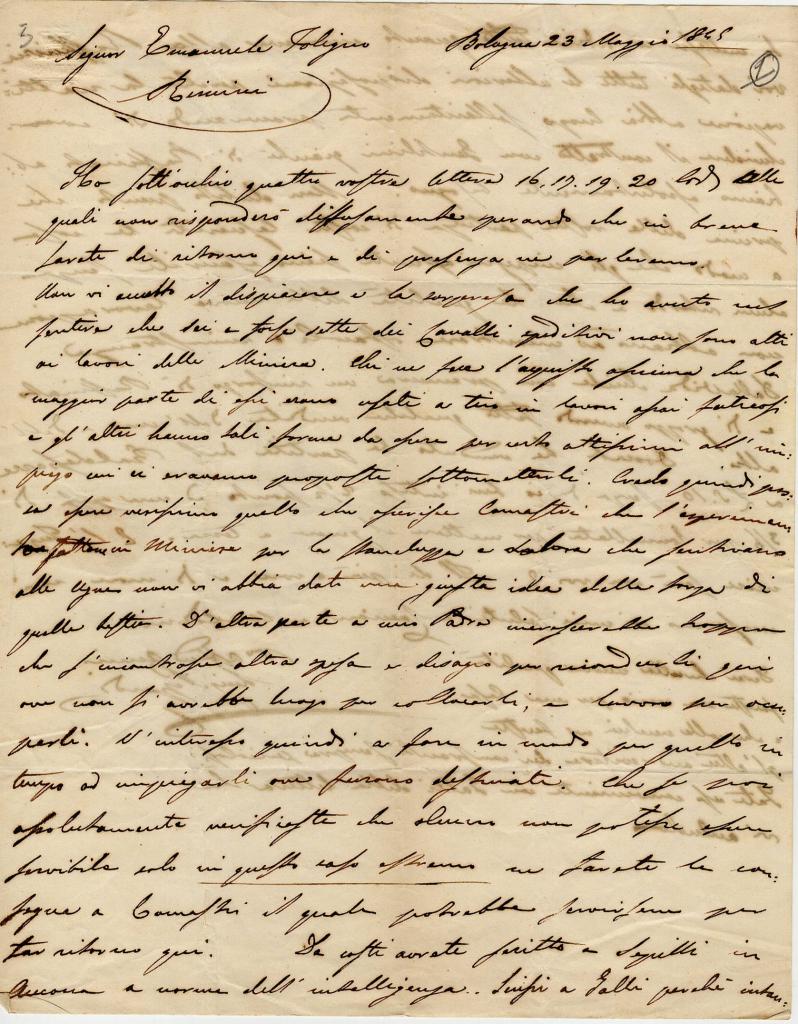 3
Signor Emanuele Foligno Bologna 23 Maggio 1845
Rimini
1
Ho sott'occhio quattro vostre lettere 16. 17. 19. 20 Cor.e alle
quali non risponderò diffusamente sperando che in breve
sarete di ritorno qui e di presenza ne parleremo.
Non vi occulto il dispiacere e la sorpresa che ho avuto nel
sentire che sei o forse sette dei Cavalli speditivi non sono atti
ai lavori delle Miniere. Chi ne fece l'acquisto assicura che la
maggior parte di essi erano usati a tiro in lavori assai faticosi
e gl'altri hanno tali forme da essere per certo attissimi all'im:
piego cui ci eravamo proposti sottometterli. Credo quindi pos:
sa essere verissimo quello che asserisce Comastri che l'esperimen
to fattone in Miniere per la stanchezza e che sentivano
alle non vi abbia dato una giusta idea della forza di
quelle bestie. D'altra parte a mio Padre increscerebbe troppo
che s'incontrasse altra spesa e disagio per ricondurli qui
ove non si avrebbe luogo per collocarli, e lavoro per occu:
parli. V'interesso quindi a fare in modo per quello in
tempo ad impiegarli ove furono destinati. Che se poi
assolutamente verificaste che alcuno non potesse essere
servibile solo in questo caso estremo ne farete la con:
segna a Comastri il quale potrebbe servirsene per
far ritorno qui. Da costì avrete scritto a in
Ancona a norma dell'intelligenza. Scrissi a Galli perchè intan: